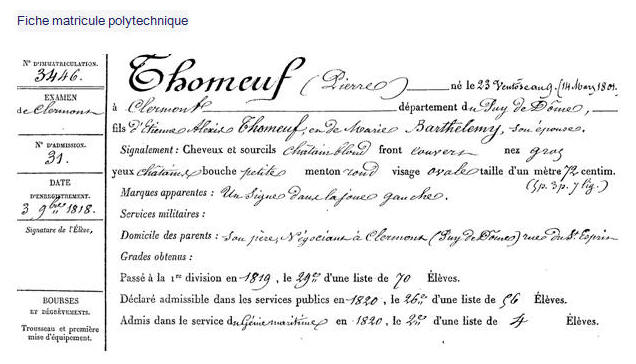 Fiche matricule polytechnique
N° D'IMMATRICULATION.
3446.
EXAMEN
de Clermont
N° D'ADMISSION.
31.
DATE
D'ENREGISTREMENT.
3 9bre 1818.
Signature de l'Élève.
BOURSES
ET DÉGRÈVEMENTS.
Trousseau et première
mise d'équipement.
Thomeuf (Pierre) né le 23 Ventôse an 9 (14 Mars 1801.
à Clermont département du Puy de Dôme,
fils d'Etienne Alexis Thomeuf, et de Marie Barthelemy, son épouse.
Signalement : Cheveux et sourcils châtain blond front couvert nez gros
yeux châtains bouche petite menton rond visage ovale taille d'un mètre 72 centim.
(5p. 3p. 7 lig.)
Marques apparentes : Un Signe dans la joue gauche.
Services militaires :
Domicile des parents : son père, Négociant à Clermont (Puy de Dôme) rue du St Esprit
Grades obtenus :
Passé à la 1re division en 1819, le 29e d'une liste de 70 Élèves.
Déclaré admissible dans les services publics en 1820, le 26e d'une liste de 56 Élèves.
Admis dans le service du Génie maritime en 1820, le 2e d'une liste de 4 Élèves.